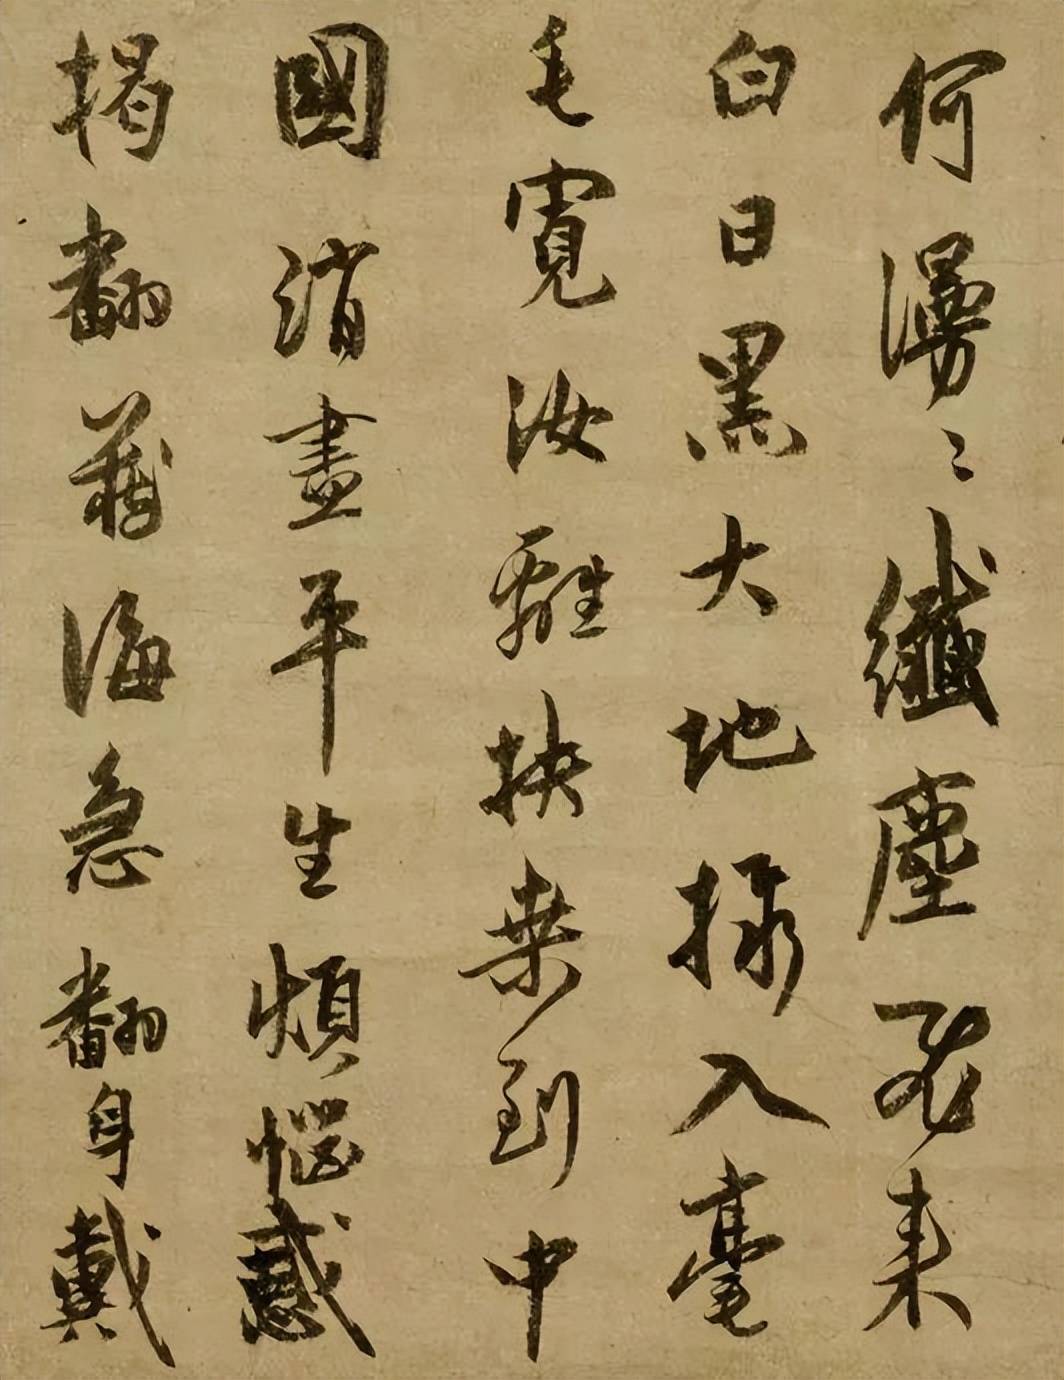 何漫〻纖塵飛來
白日黑大地掾入毫
毛寬汝離扶桒到中
國消盡平生煩惱惑
揭翻藏海急翻身戴